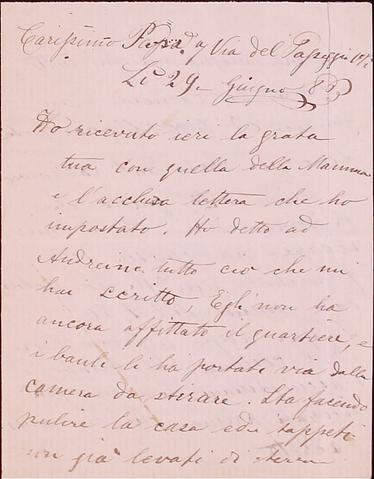 Carissimo Papà Via del Papeggio
Li 29 Giugno 83
Ho ricevuto ieri la grata
tua con quella della Mamma
e l'acclusa lettera che ho
impostato. Ho detto ad
Andreina tutto ciò che mi
hai scritto, Egli non ha
ancora affittato il quartiere, e
i bauli li ha portati via dalla
camera da stirare. Sta facendo
pulire la casa ed i tappeti
son già levati di terra